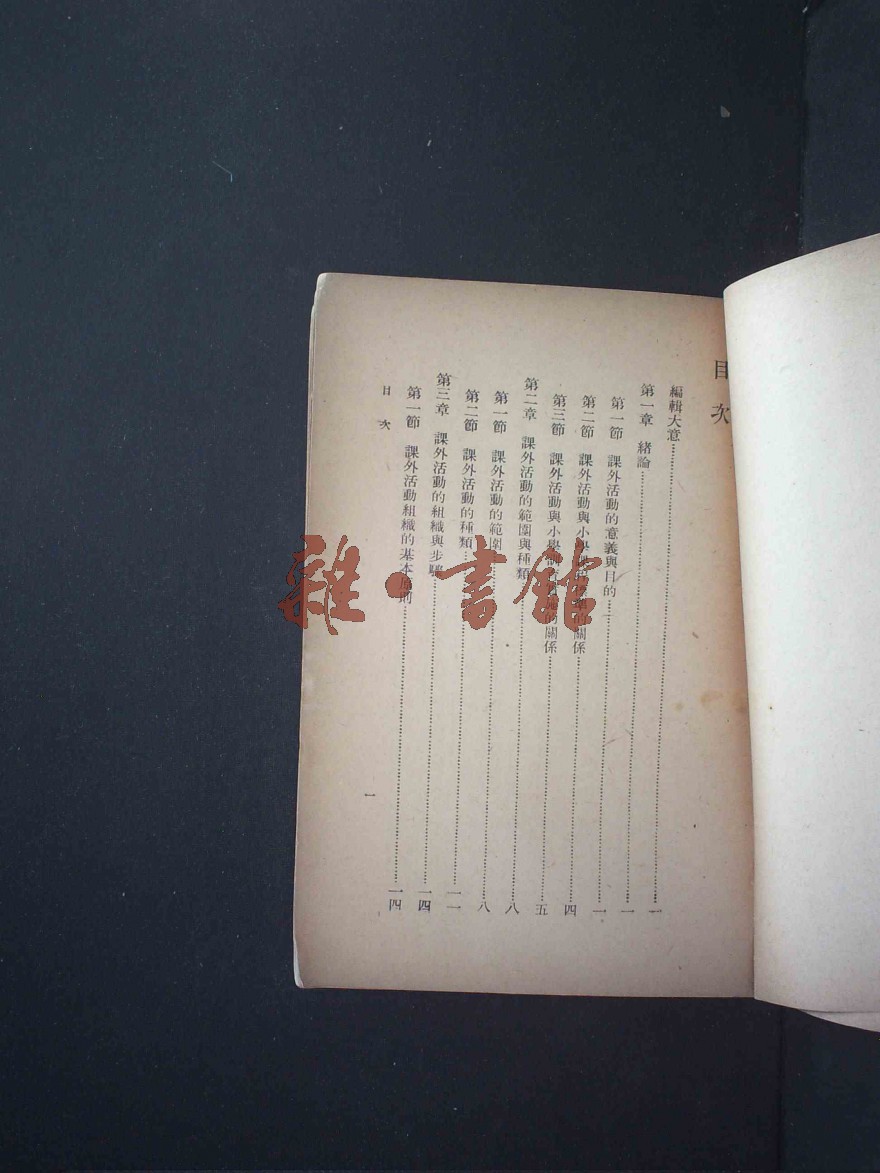 目次
編輯大意……一
第一章 緒論……一
第一節 課外活動的意義與目的……一
第二節 課外活動與小學課程標準的關係……四
第三節 課外活動與小學訓育標準的關係……五
第二章 課外活動的範圍與種類……八
第一節 課外活動的範圍……八
第二節 課外活動的種類……一一
第三章 課外活動的組織與步驟……一四
第一節 課外活動組織的基本原則……一四
目次
一
雜·書館